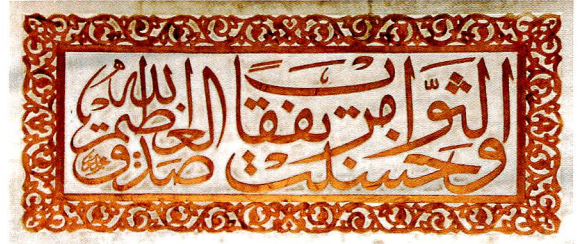 الثواب وحسنت مرتفقا صدق الله العظيم